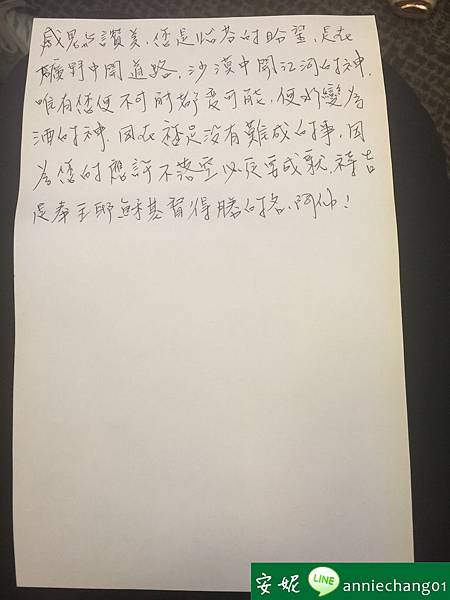 感恩与讚美，您是臨芬的盼望，是在
曠野中開道路，沙漠中開江河的神，
唯有您使不可能都變可能，使水變為
酒的神，因在祢是沒有難成的事，因
為您的應許不落空必定要成就，禱告
是奉主耶穌基督得勝的名，阿們！
安妮 LINE anniechang01